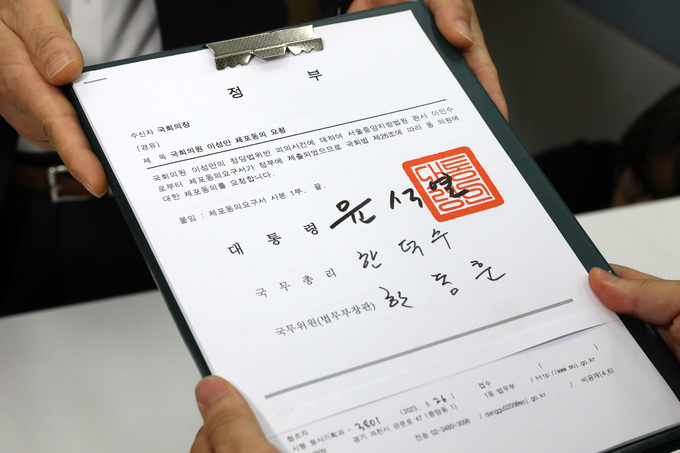 정 부
수신자 국회의장
(경유)
제 목 국회의원 이성만 체포동의 요청
국회의원 이성만의 정당법위반 피의사건에 대하여 서울중앙지방법원 판사 이민수
로부터 체포동의요구서가 정부에 제출되었으므로 국회법 제26조에 따라 동 의원에
대한 체포동의를 요청합니다.
붙임 : 체포동의요구서 사본 1부. 끝.
대 통 령 윤석열
국 무 총 리 한덕수
국무위원(법무부장관) 한동훈
협조자
시행 형사기획과 - 3801 (2023. 5. 26 ) 접수 ( )
경기 과천시 관문로 47 (중앙동 1) 1동 법무부 / http://www.moj.go.kr
전송 02-3480-3098 / @moj.go.kr / 비공개(4,6)